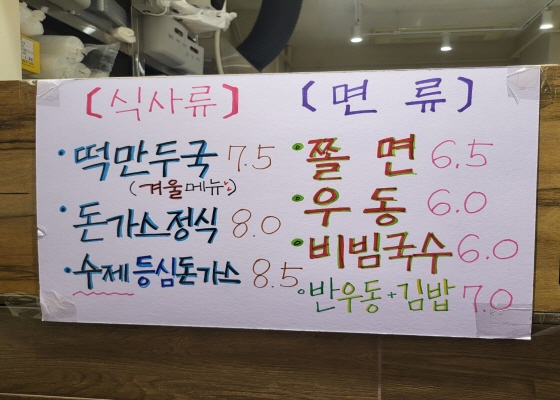 [식사류]
• 떡만두국 7.5
(겨울메뉴♡)
• 돈가스정식 8.0
• 수제등심돈가스 8.5
[면 류]
• 쫄 면 6.5
• 우 동 6.0
• 비빔국수 6.0
• 반우동+김밥 7.0